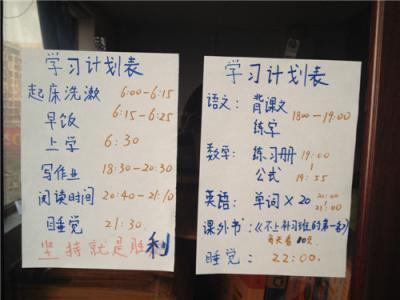 学习计划表
起床洗漱 6:00-6:15
早饭 6:15-6:25
上学 6:30
写作业 18:30-20:30
阅读时间 20:40-21:10
睡觉 21:30
坚持就是胜利
学习计划表
语文: 背课文
练字 1800-19:00
数学: 练习册 19:00
公式 19:55
英语: 单词×20 20:00
21:00
课外书:《不上补习班的第一名》
每天看
睡觉: 22:00.